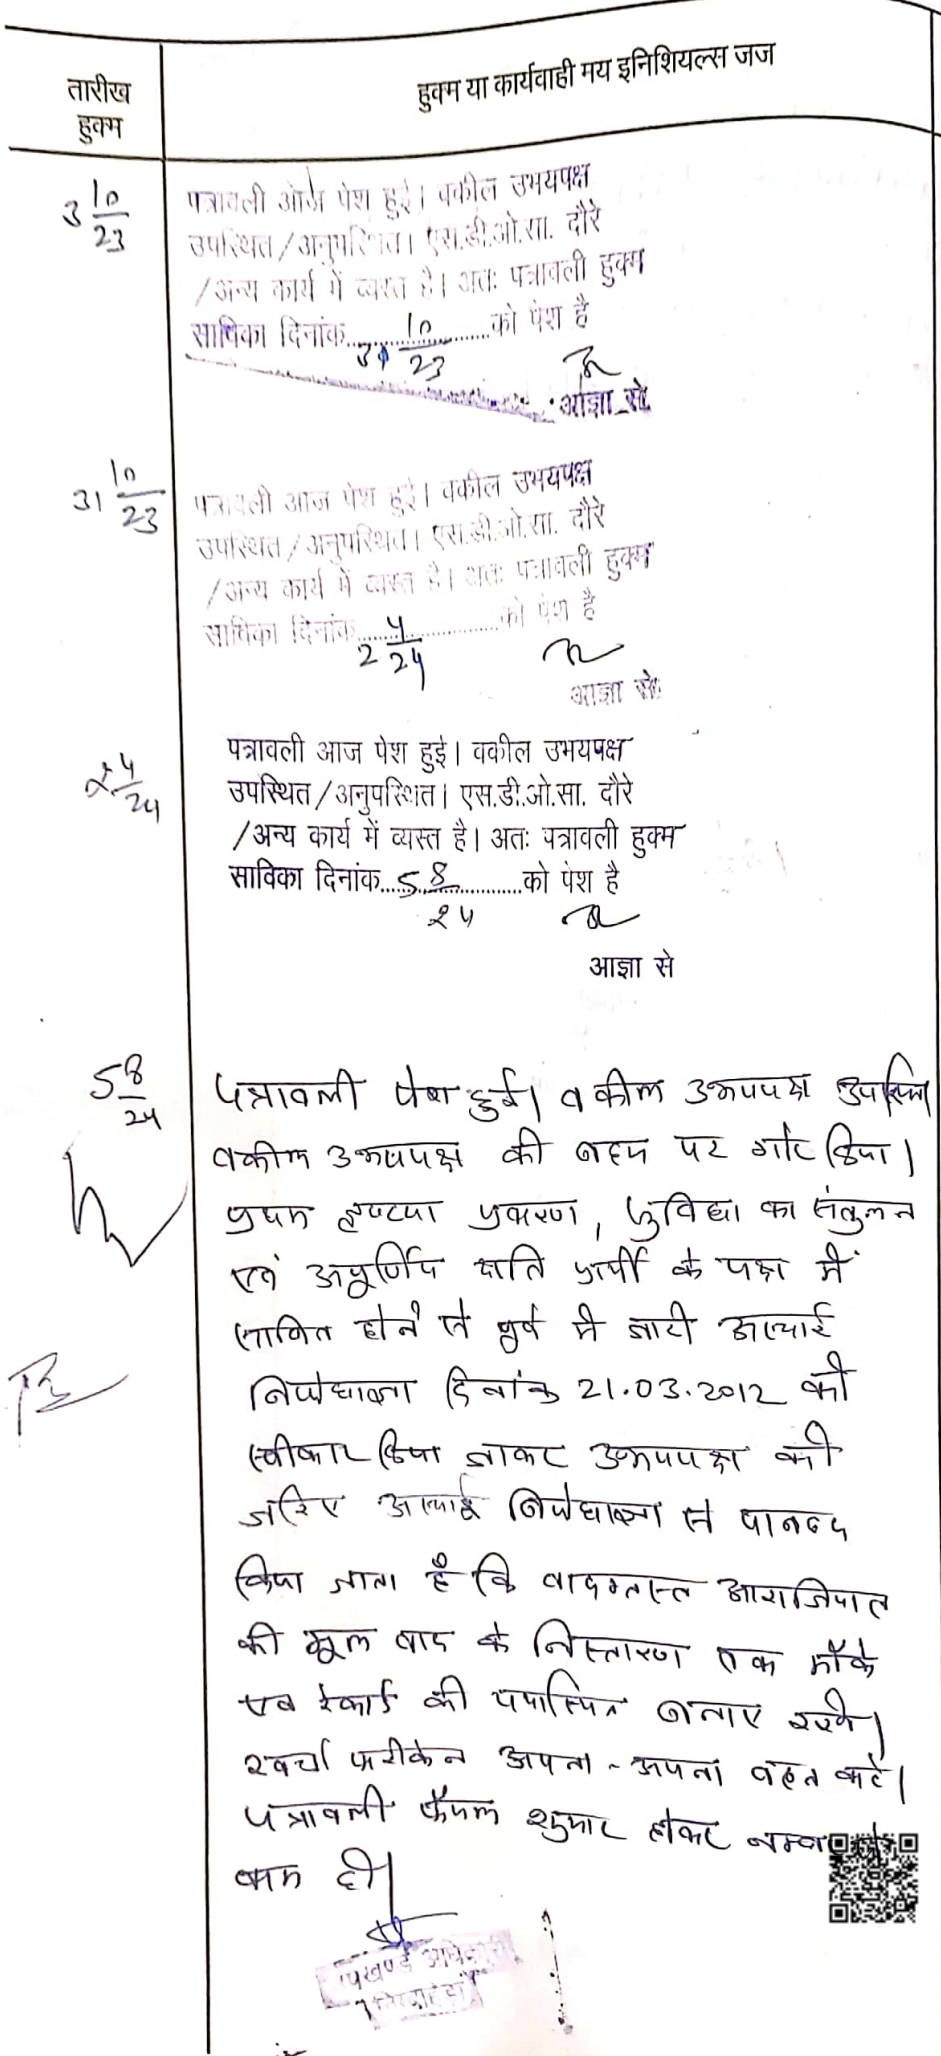 तारीख
हुक्म
हुक्म या कार्यवाही मय इनिशियल्स जज
3 10/23
पत्रावली आज पेश हुई। वकील उभयपक्ष
उपस्थित/अनुपस्थित। एस.डी.ओ.सा. दौरे
/अन्य कार्य में व्यस्त है। अतः पत्रावली हुक्म
साविका दिनांक 31 10/23 को पेश है
आज्ञा से
31 10/23
पत्रावली आज पेश हुई। वकील उभयपक्ष
उपस्थित/अनुपस्थित। एस.डी.ओ.सा. दौरे
/अन्य कार्य में व्यस्त है। अतः पत्रावली हुक्म
साविका दिनांक 2 4/24 को पेश है
आज्ञा से
2 4/24
पत्रावली आज पेश हुई। वकील उभयपक्ष
उपस्थित/अनुपस्थित। एस.डी.ओ.सा. दौरे
/अन्य कार्य में व्यस्त है। अतः पत्रावली हुक्म
साविका दिनांक 5 8/24 को पेश है
आज्ञा से
5 8/24
पत्रावली पेश हुई। वकील उभयपक्ष उपस्थित
वकील उभयपक्ष की बहस पर गौर किया।
प्रथम दृष्टया प्रकरण, सुविधा का संतुलन
एवं अपूर्णिय क्षति प्रार्थी के पक्ष में
साबित होने से पूर्व में जारी अस्थाई
निषेधाज्ञा दिनांक 21.03.2012 को
स्वीकार किया जाकर उभयपक्ष को
जरिए अस्थाई निषेधाज्ञा से पाबन्द
किया जाता है कि वादग्रस्त आराजियात
की मूल वाद के निस्तारण तक मौके
एवं रेकार्ड की यथास्थिति बनाए रखे।
खर्चा फरीकेन अपना-अपना वहन करे।
पत्रावली फैसल शुमार होकर नम्बर से
कम हो।
उपखण्ड अधिकारी